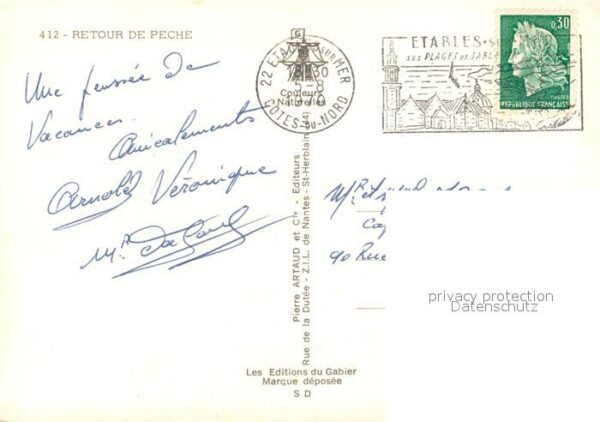 412 - RETOUR DE PECHE
Une pensée de
Vacances.
Amicalements
Arnold Véronique
G
Couleurs
Naturelles
22 ETABLES SUR MER
COTES-DU-NORD
ETABLES-
SES PLAGES DE SABLE
0,30
REPUBLIQUE FRANÇAISE
Pierre ARTAUD et Cie - Editeurs
Rue de la Dutée - Z.I.L. de Nantes - St-Herblain (44)
90 Rue
privacy protection
Datenschutz
Les Editions du Gabier
Marque déposée
S D